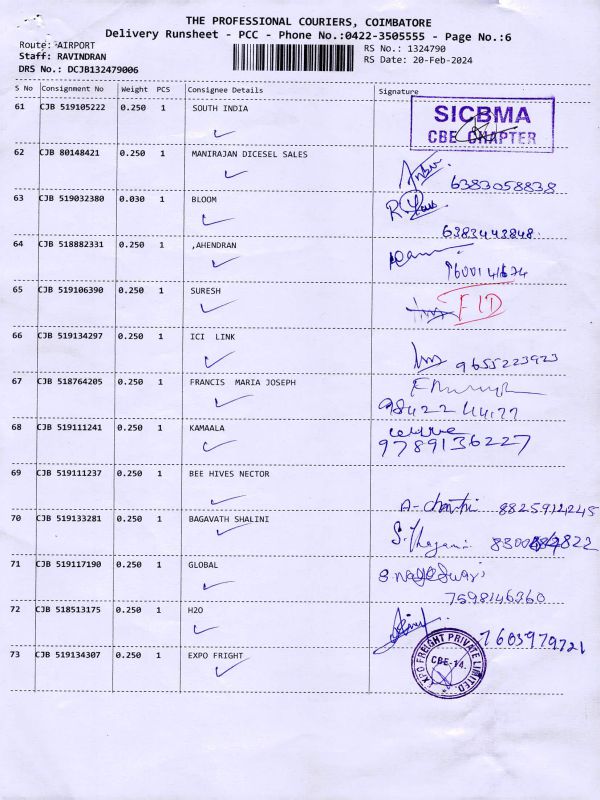 THE PROFESSIONAL COURIERS, COIMBATORE
Delivery Runsheet - PCC - Phone No.:0422-3505555 - Page No.:6
Route: AIRPORT
RS No.: 1324790
Staff: RAVINDRAN
RS Date: 20-Feb-2024
DRS No.: DCJB132479006
S No Consignment No Weight PCS Consignee Details Signature
61 CJB 519105222 0.250 1 SOUTH INDIA
SICBMA
CBE CHAPTER
62 CJB 80148421 0.250 1 MANIRAJAN DICESEL SALES
6383058838
63 CJB 519032380 0.030 1 BLOOM
6383443848
64 CJB 518882331 0.250 1 ,AHENDRAN
65 CJB 519106390 0.250 1 SURESH
FID
66 CJB 519134297 0.250 1 ICI LINK
9655223923
67 CJB 518764205 0.250 1 FRANCIS MARIA JOSEPH
68 CJB 519111241 0.250 1 KAMAALA
9789136227
69 CJB 519111237 0.250 1 BEE HIVES NECTOR
8825912245
70 CJB 519133281 0.250 1 BAGAVATH SHALINI
71 CJB 519117190 0.250 1 GLOBAL
7598146360
72 CJB 518513175 0.250 1 H2O
7603979721
73 CJB 519134307 0.250 1 EXPO FRIGHT
EXPO FREIGHT PRIVATE LIMITED
CBE-14.